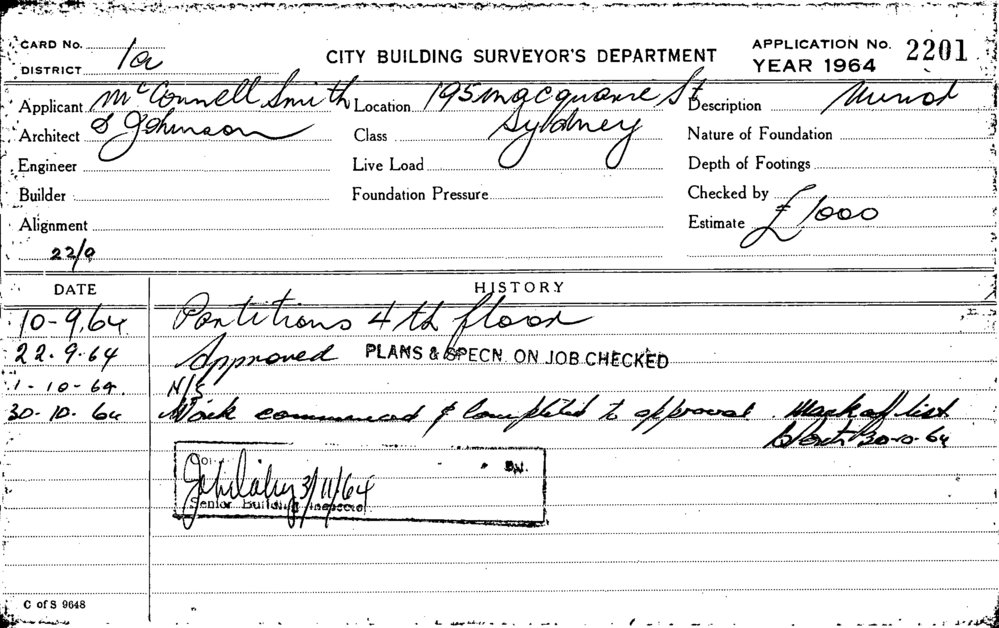 CARD No. 1a
DISTRICT
CITY BUILDING SURVEYOR'S DEPARTMENT
APPLICATION No. 2201
YEAR 1964
Applicant McConnell Smith
Location 195 Macquarie St
Description Minor
Architect & Johnson
Class Sydney
Nature of Foundation
Engineer
Live Load
Depth of Footings
Builder
Foundation Pressure
Checked by
Alignment
Estimate £1000
22/9
DATE HISTORY
10-9.64 Partitions 4th floor
22.9.64 Approved PLANS & SPECN. ON JOB CHECKED
1-10-64 N/S
30-10-64 Work commenced & completed to approval. Mark off list
30-10-64
3/11/64
Senior Building Inspector
C of S 9648